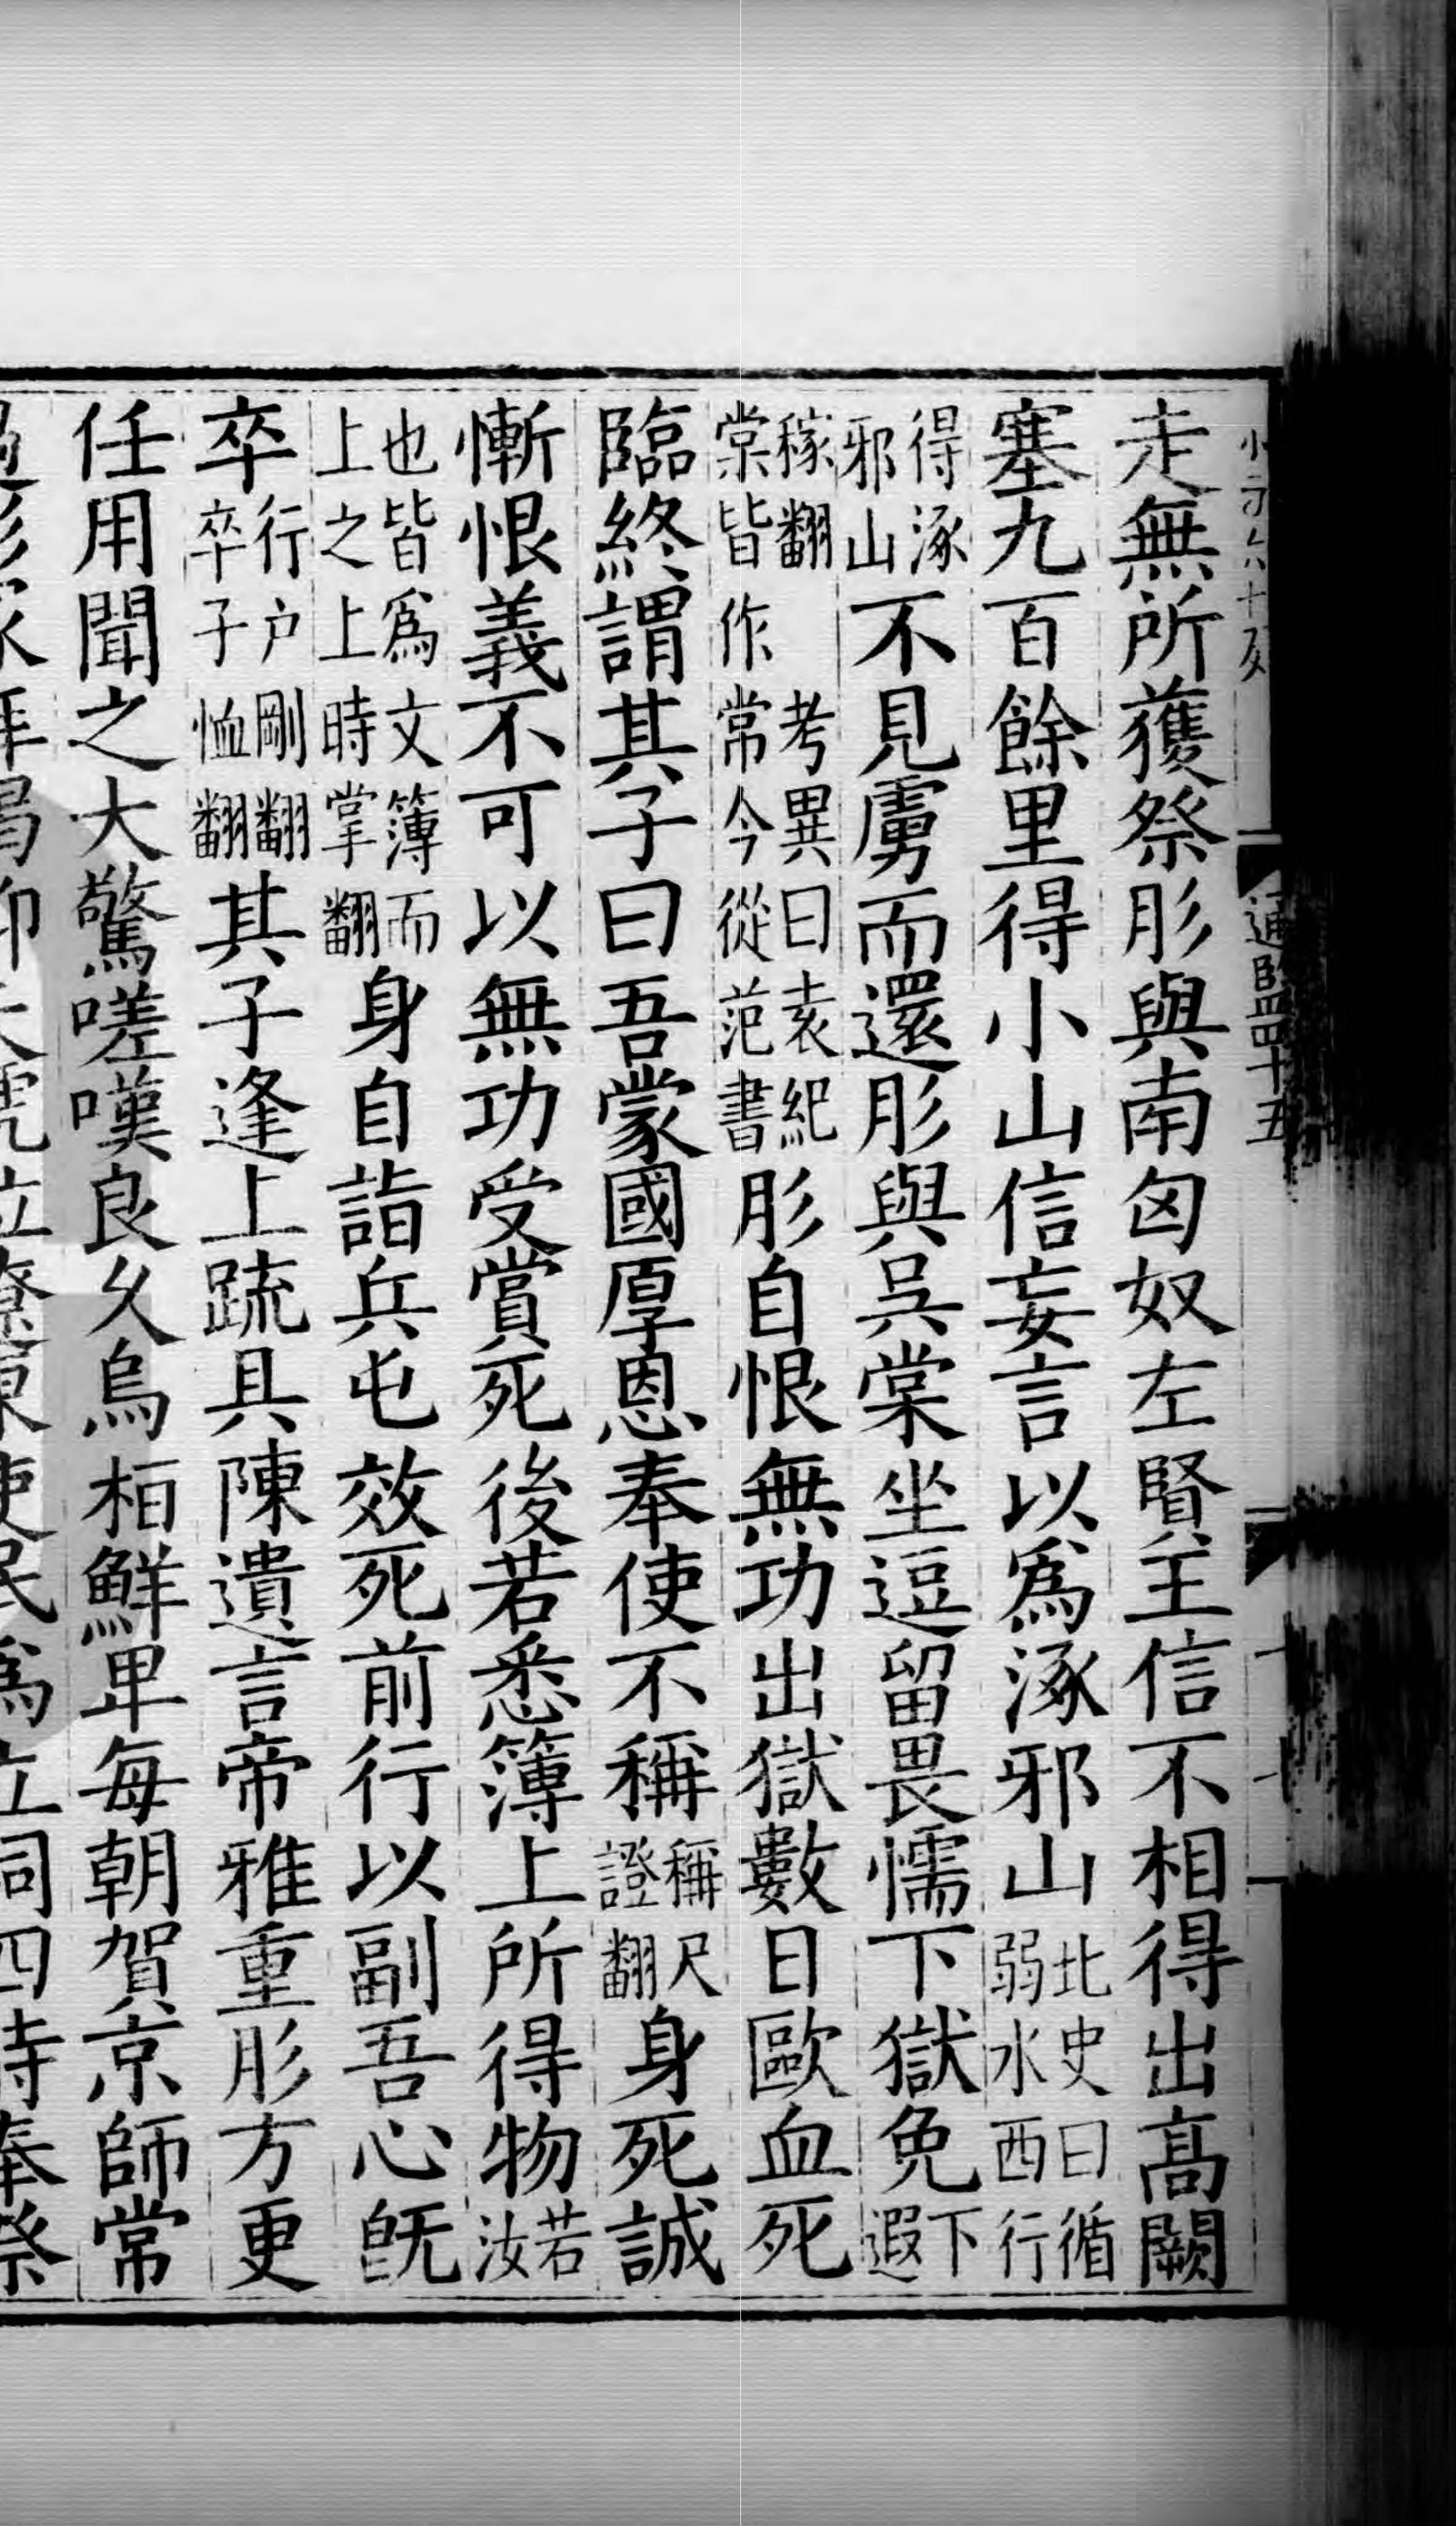 走無所獲祭肜與南匈奴左賢王信不相得出高闕
塞九百餘里得小山信妄言以爲涿邪山北史曰循弱水西行
得涿邪山不見虜而還肜與吳棠坐逗留畏懦下獄免下遐
稼翻棠皆作常考異曰袁紀今從范書肜自恨無功出獄數日歐血死
臨終謂其子曰吾蒙國厚恩奉使不稱稱尺證翻身死誠
慚恨義不可以無功受賞死後若悉簿上所得物若汝
也皆爲上之上文簿而時掌翻身自詣兵屯效死前行以副吾心旣
卒行户剛翻卒子恤翻其子逢上疏具陳遺言帝雅重肜方更
任用聞之大驚嗟嘆良久烏桓鮮卑每朝賀京師常
通鑑四十五